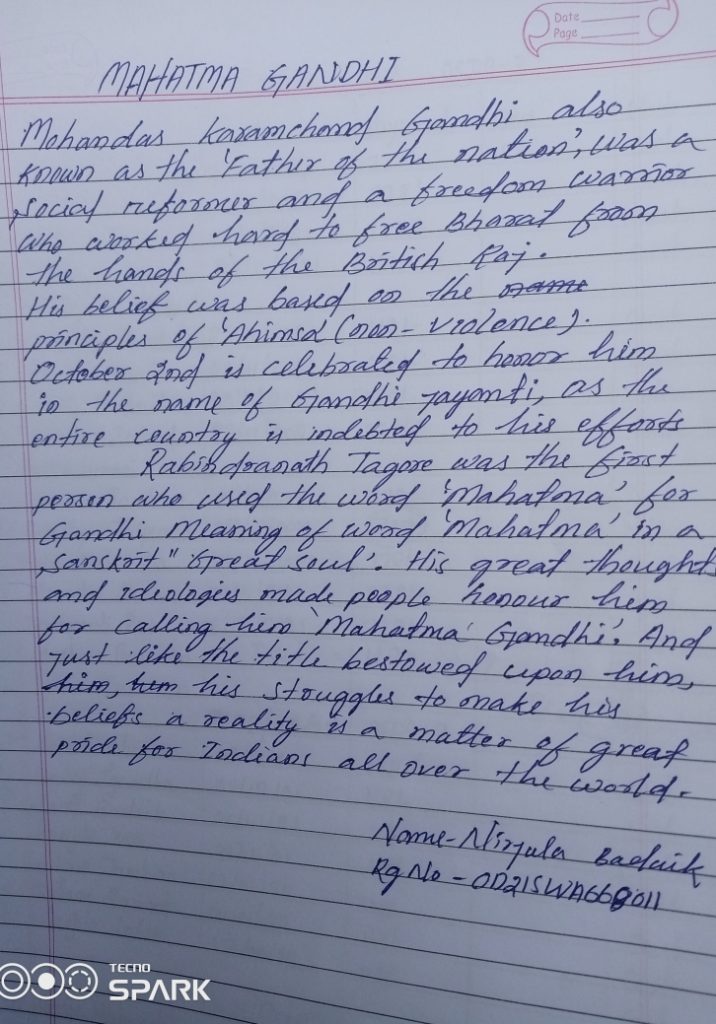 Date
Page
MAHATMA GANDHI
Mohandas Karamchand Gandhi also
known as the 'Father of the nation', was a
social reformer and a freedom warrior
who worked hard to free Bharat from
the hands of the British Raj.
His belief was based on the name
principles of 'Ahimsa (non-violence).
October 2nd is celebrated to honor him
in the name of Gandhi jayanti, as the
entire country is indebted to his efforts
Rabindranath Tagore was the first
person who used the word 'Mahatma' for
Gandhi Meaning of word 'Mahatma' in a
Sanskrit "Great soul'. His great thoughts
and ideologies made people honour him
for calling him 'Mahatma Gandhi'. And
just like the title bestowed upon him,
him, him his struggles to make his
beliefs a reality is a matter of great
pride for Indians all over the world.
Name-Nirjula Badaik
Rg No - OD21SWA668011
TECNO
SPARK